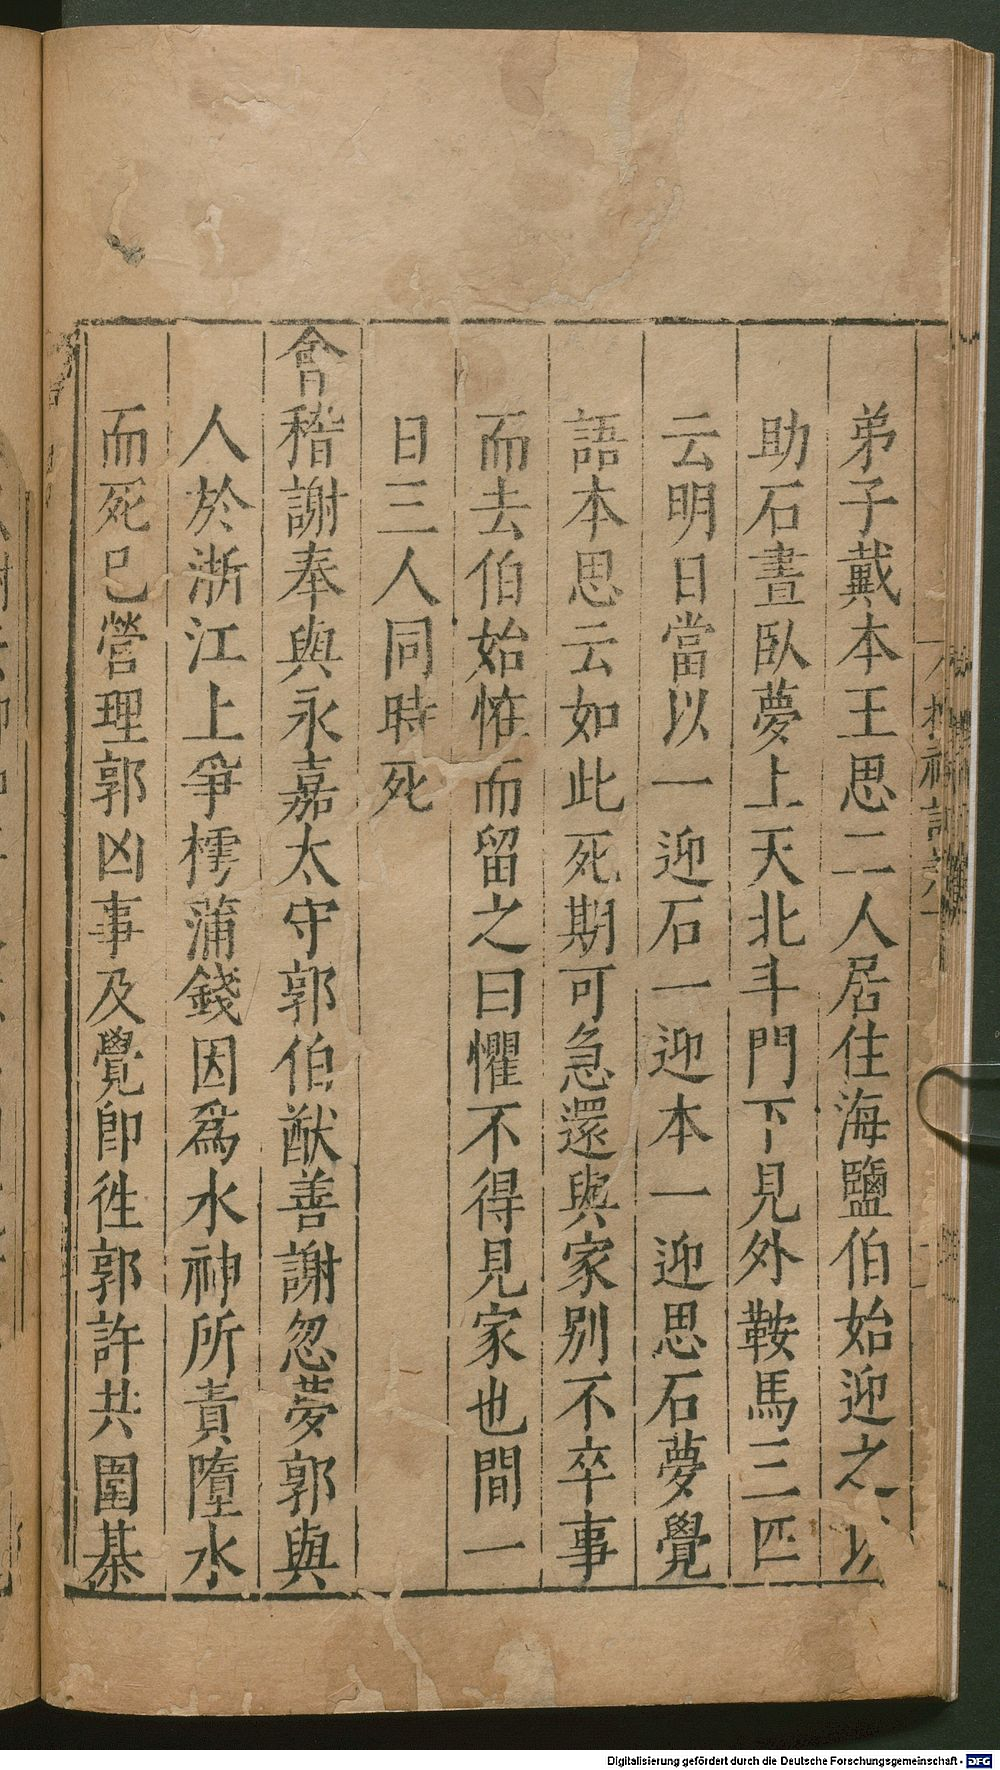 弟子戴本王思二人居住海鹽伯始迎之以
助石晝臥夢上天北斗門下見外鞍馬三匹
云明日當以一迎石一迎本一迎思石夢覺
語本思云如此死期可急還與家別不卒事
而去伯始恠而留之曰懼不得見家也間一
日三人同時死
會稽謝奉與永嘉太守郭伯猷善謝忽夢郭與
人於浙江上爭樗蒲錢因爲水神所責墮水
而死已營理郭凶事及覺卽徃郭許共圍棊
Digitalisierung gefördert durch die Deutsche Forschungsgemeinschaft - DFG